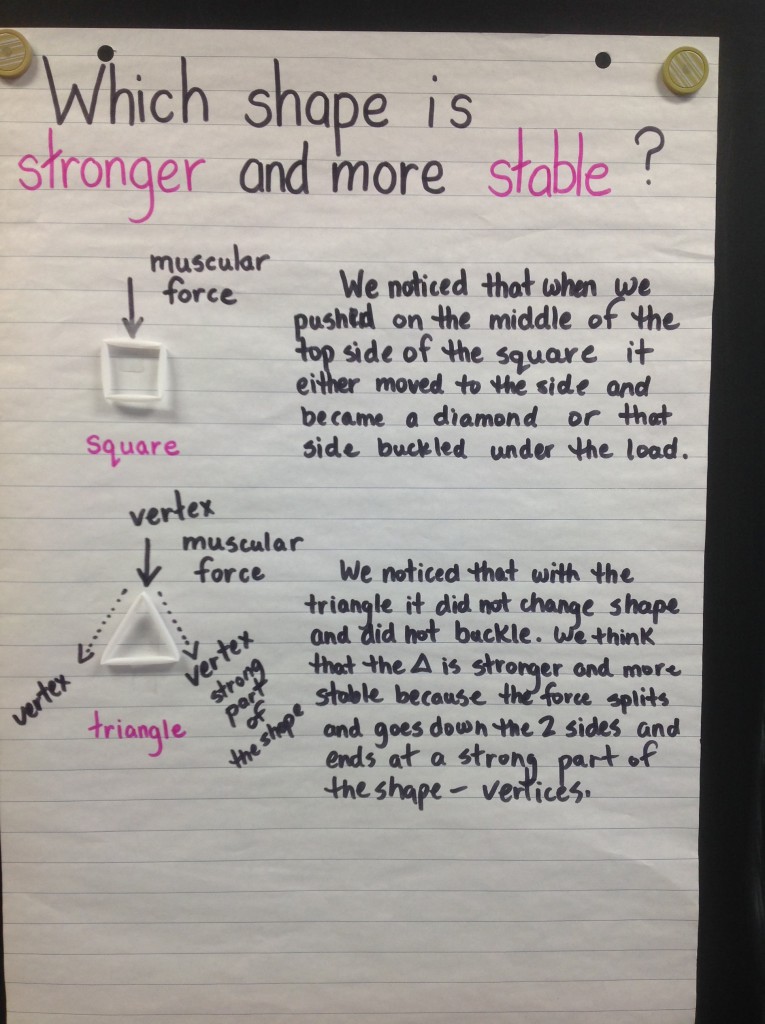 Which shape is
stronger and more stable?
muscular
force
square
We noticed that when we
pushed on the middle of the
top side of the square it
either moved to the side and
became a diamond or that
side buckled under the load.
vertex
muscular
force
vertex
vertex
strong
part
of
the shape
triangle
We noticed that with the
triangle it did not change shape
and did not buckle. We think
that the Δ is stronger and more
stable because the force splits
and goes down the 2 sides and
ends at a strong part of
the shape - vertices.